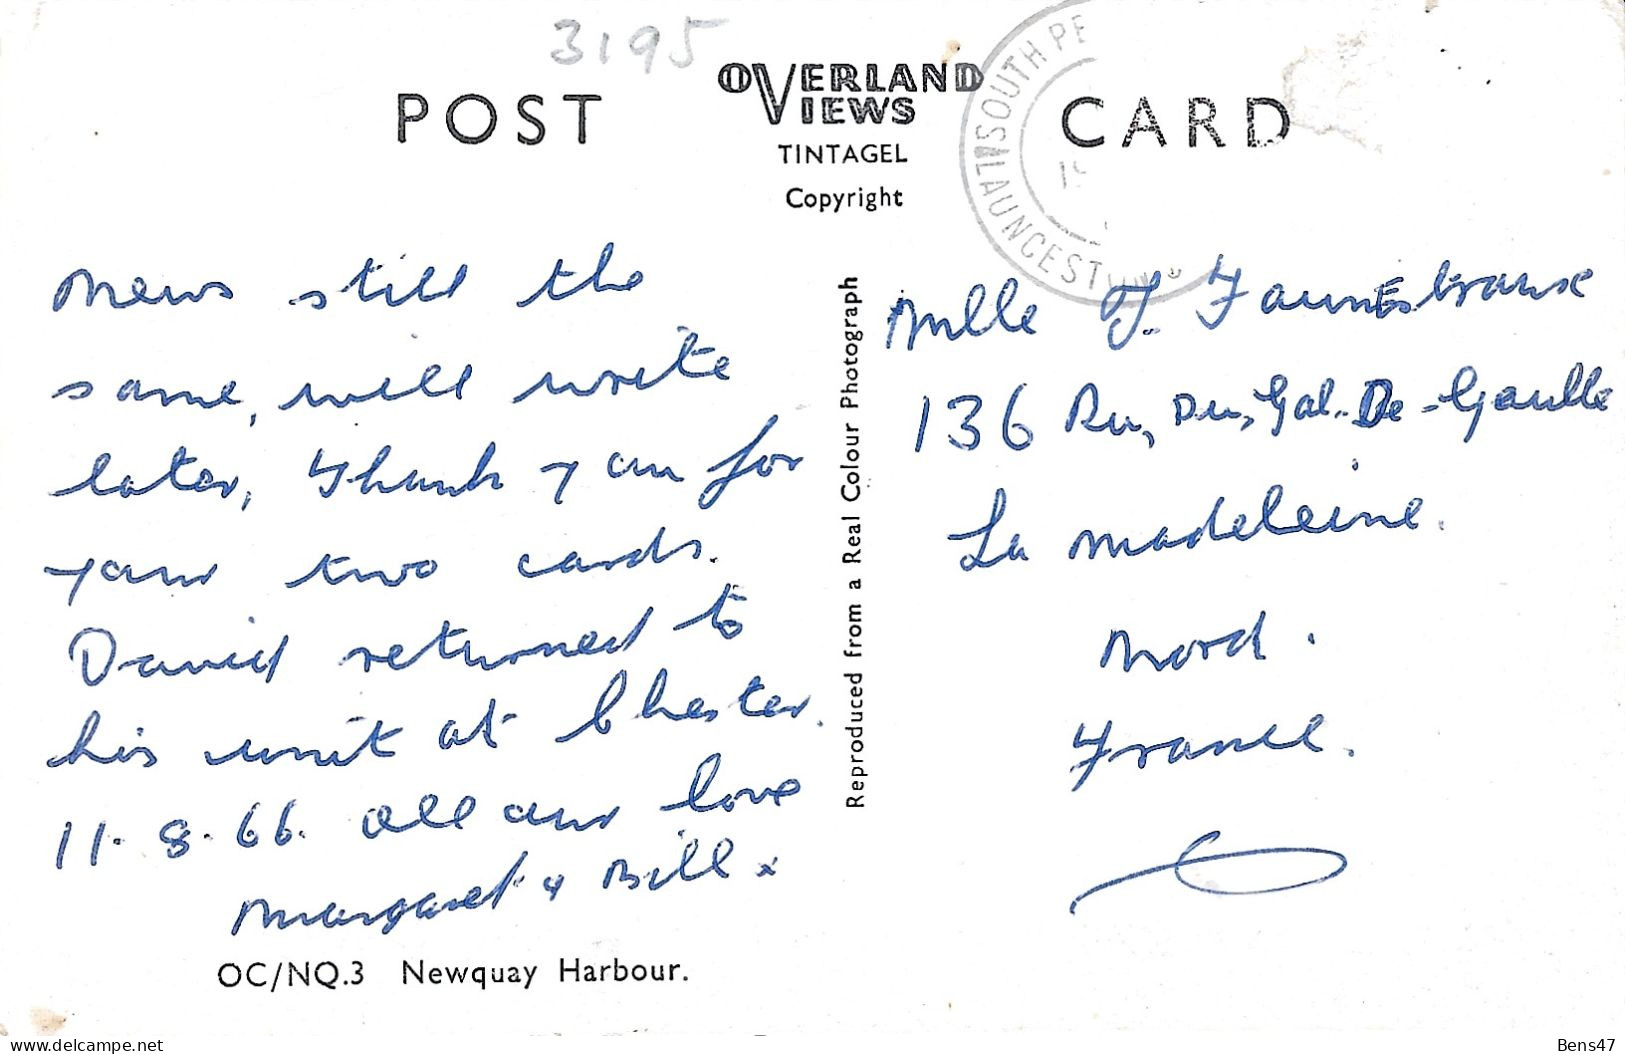 3195
POST CARD
OVERLAND
VIEWS
TINTAGEL
Copyright
SOUTH PE
LAUNCESTON
News still the
same, will write
later, Thank you for
your two cards.
David returned to
his unit at Chester.
11.8.66. All our love
Margaret & Bill x
OC/NQ.3 Newquay Harbour.
Reproduced from a Real Colour Photograph
Mlle J.
136 Ru, Du, Gal. De-Gaulle
La Madeleine.
Nord.
France.
delcampe.net
Bens47